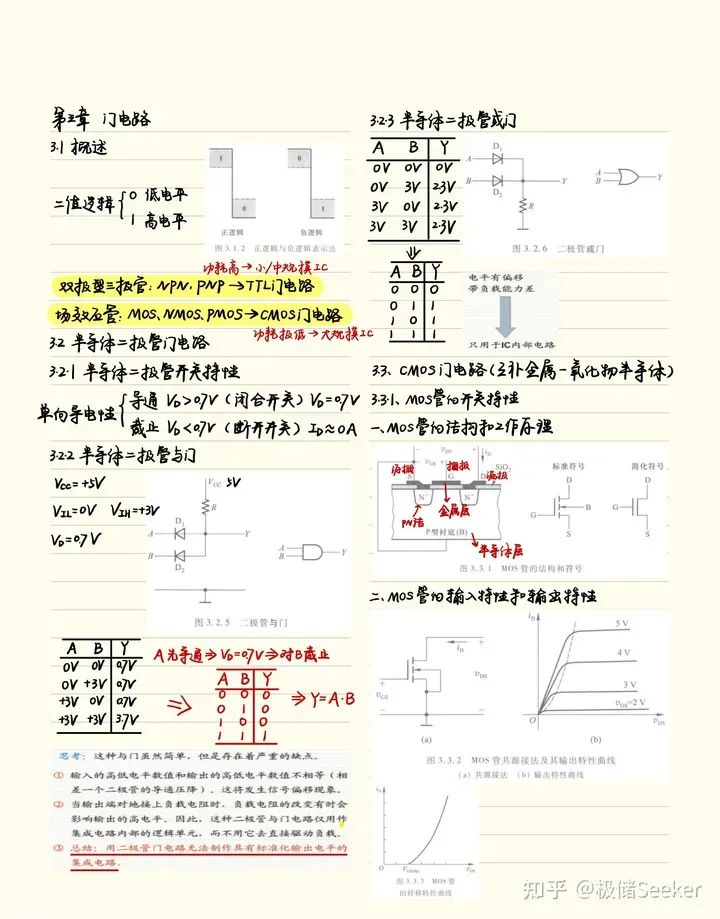 第三章 门电路
3.1 概述
二值逻辑 { 0 低电平
1 高电平
1
0
正逻辑
0
1
负逻辑
图 3.1.2 正逻辑与负逻辑表示法
功耗高→小/中规模IC
双极型三极管: NPN, PNP→TTL门电路
场效应管: MOS、NMOS、PMOS→CMOS门电路
功耗极低→大规模IC
3.2 半导体二极管门电路
3.2.1 半导体二极管开关特性
单向导电性 { 导通 VD>0.7V (闭合开关) VD=0.7V
截止 VD<0.7V (断开开关) ID≈0A
3.2.2 半导体二极管与门
VCC=+5V
VIL=0V VIH=+3V
VD=0.7V
VCC 5V
R
D1
A
B
D2
Y
A
B
Y
图 3.2.5 二极管与门
A B Y
0V 0V 0.7V
0V +3V 0.7V
+3V 0V 0.7V
+3V +3V 3.7V
A先导通⇒VD=0.7V⇒对B截止
⇒
A B Y
0 0 0
0 1 0
1 0 0
1 1 1
⇒ Y=A·B
思考: 这种与门虽然简单, 但是存在着严重的缺点。
① 输入的高低电平数值和输出的高低电平数值不相等(相
差一个二极管的导通压降)。这将发生信号偏移现象。
② 当输出端对地接上负载电阻时, 负载电阻的改变有时会
影响输出的高电平。因此, 这种二极管与门电路仅用作
集成电路内部的逻辑单元, 而不用它去直接驱动负载。
③ 总结: 用二极管门电路无法制作具有标准化输出电平的
集成电路。
3.2.3 半导体二极管或门
A B Y
0V 0V 0V
0V 3V 2.3V
3V 0V 2.3V
3V 3V 2.3V
D1
A
B
D2
Y
R
A
B
Y
图 3.2.6 二极管或门
A B Y
0 0 0
0 1 1
1 0 1
1 1 1
电平有偏移
带负载能力差
只用于IC内部电路
3.3、CMOS门电路(互补金属-氧化物半导体)
3.3.1、MOS管的开关特性
一、MOS管的结构和工作原理
vDS
vGS
iD
栅极
S
G
D
SiO2
漏极
N+
N+
PN结
金属层
P型衬底(B)
半导体层
标准符号
D
G
B
S
简化符号
D
G
S
图 3.3.1 MOS 管的结构和符号
二、MOS管的输入特性和输出特性
iD
vGS
vDS
(a)
iD
5 V
4 V
3 V
vGS=2 V
O
vDS
(b)
图 3.3.2 MOS 管共源接法及其输出特性曲线
(a) 共源接法 (b) 输出特性曲线
iD
O
VGS(th)
vGS
图 3.3.3 MOS 管
的转移特性曲线
知乎 @极储Seeker